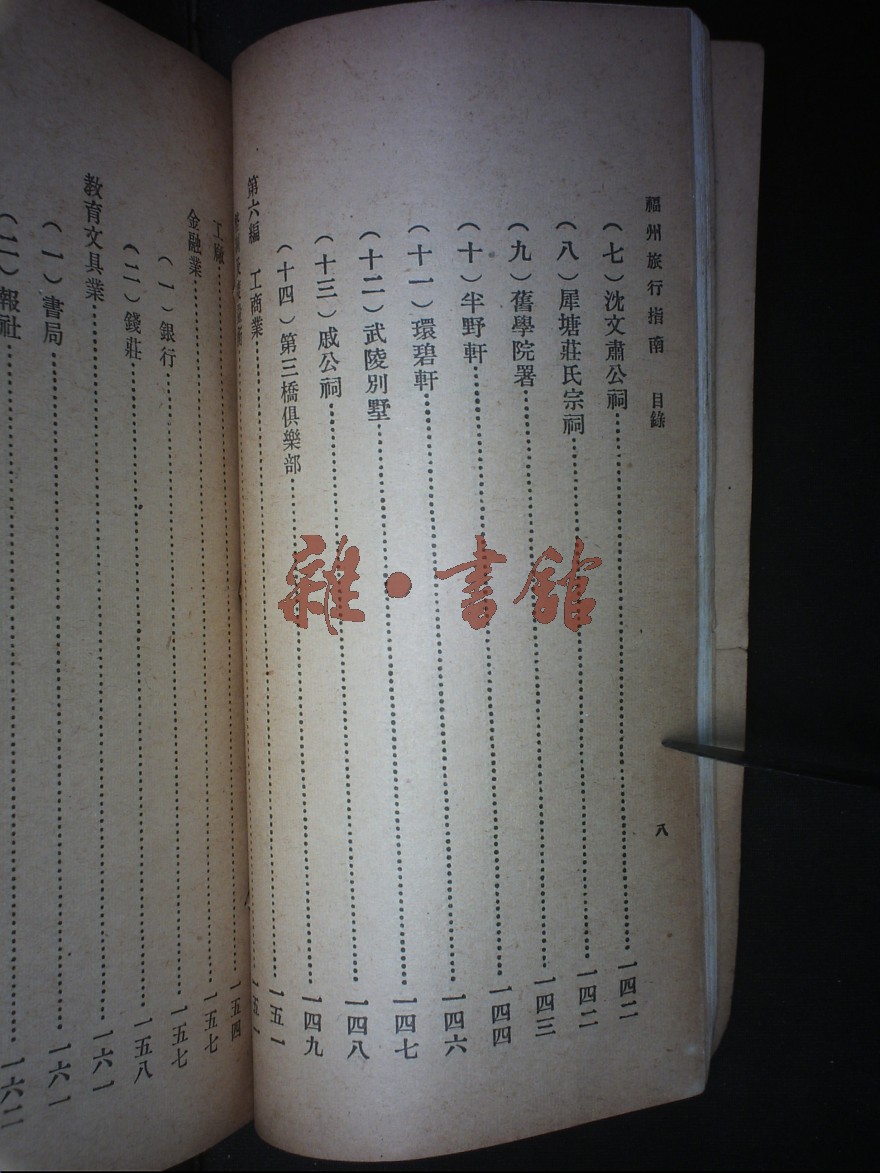 福州旅行指南 目錄 八
(七)沈文肅公祠……一四二
(八)犀塘莊氏宗祠……一四二
(九)舊學院署……一四三
(十)半野軒……一四四
(十一)環碧軒……一四六
(十二)武陵別墅……一四七
(十三)戚公祠……一四八
(十四)第三橋俱樂部……一四九
第六編 工商業……一五一
……一五一
工廠……一五四
金融業……一五七
(一)銀行……一五七
(二)錢莊……一五八
教育文具業……一六一
(一)書局……一六一
(二)報社……一六二
雜·書館